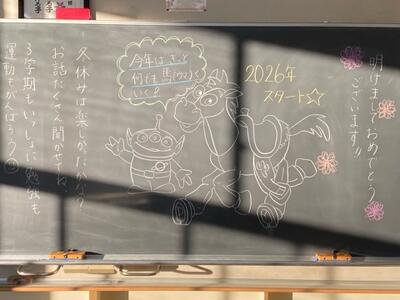 明けましておめでとう
ございます!!
2026年
スタート☆
今年はきっと
何でも馬(ウマ)く
いく!
冬休みは楽しかったかな?
お話たくさん聞かせてね。
3学期もいっしょに勉強も
運動もがんばろう